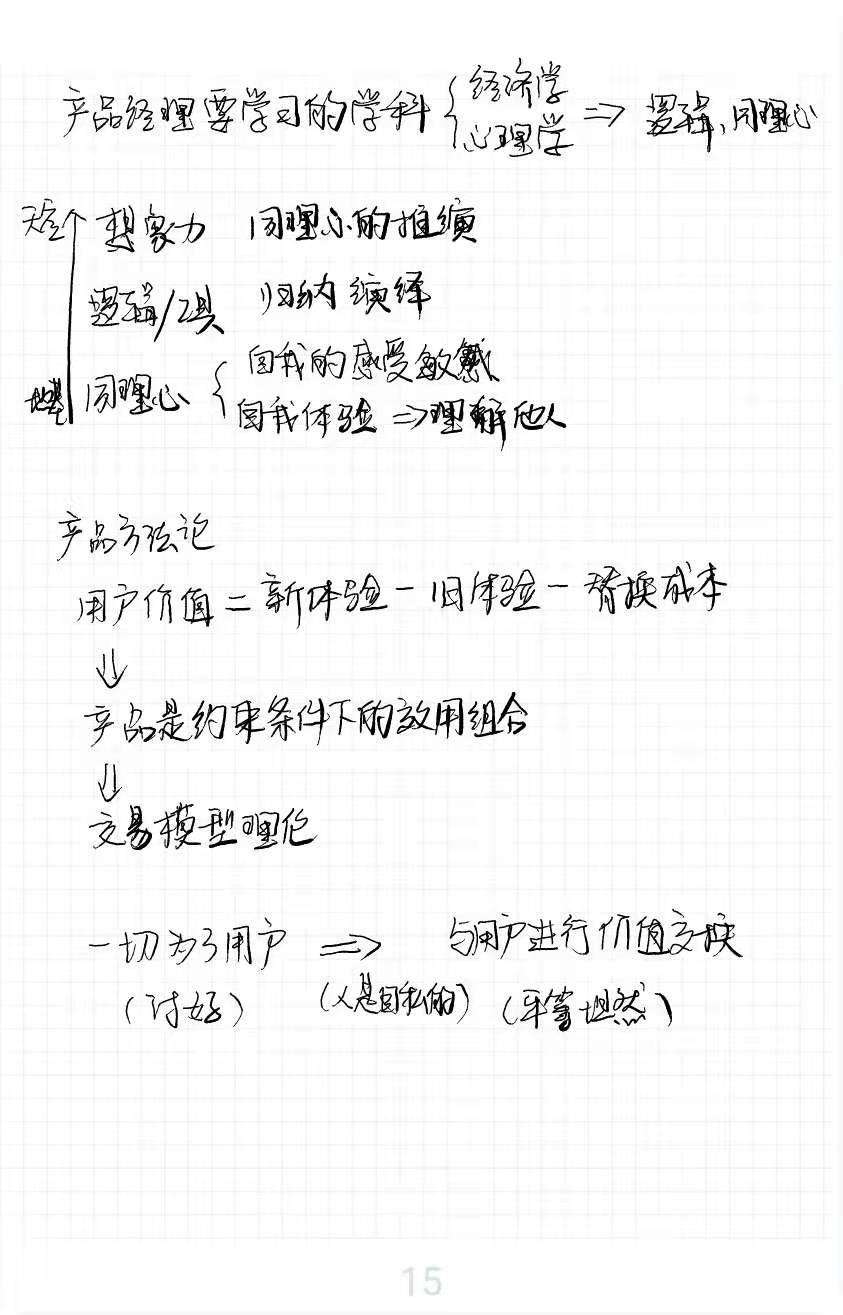 产品经理要学习的学科 { 经济学
心理学 ⇒ 逻辑,同理心
天空 ↑ 想象力 同理心的推演
逻辑/工具 归纳 演绎
地基 同理心 { 自我的感受敏感
自我体验 ⇒ 理解他人
产品方法论
用户价值 = 新体验 - 旧体验 - 替换成本
⇓
产品是约束条件下的效用组合
⇓
交易模型理论
一切为了用户 ⇒ 与用户进行价值交换
(讨好) (人是自私的) (平等坦然)
15